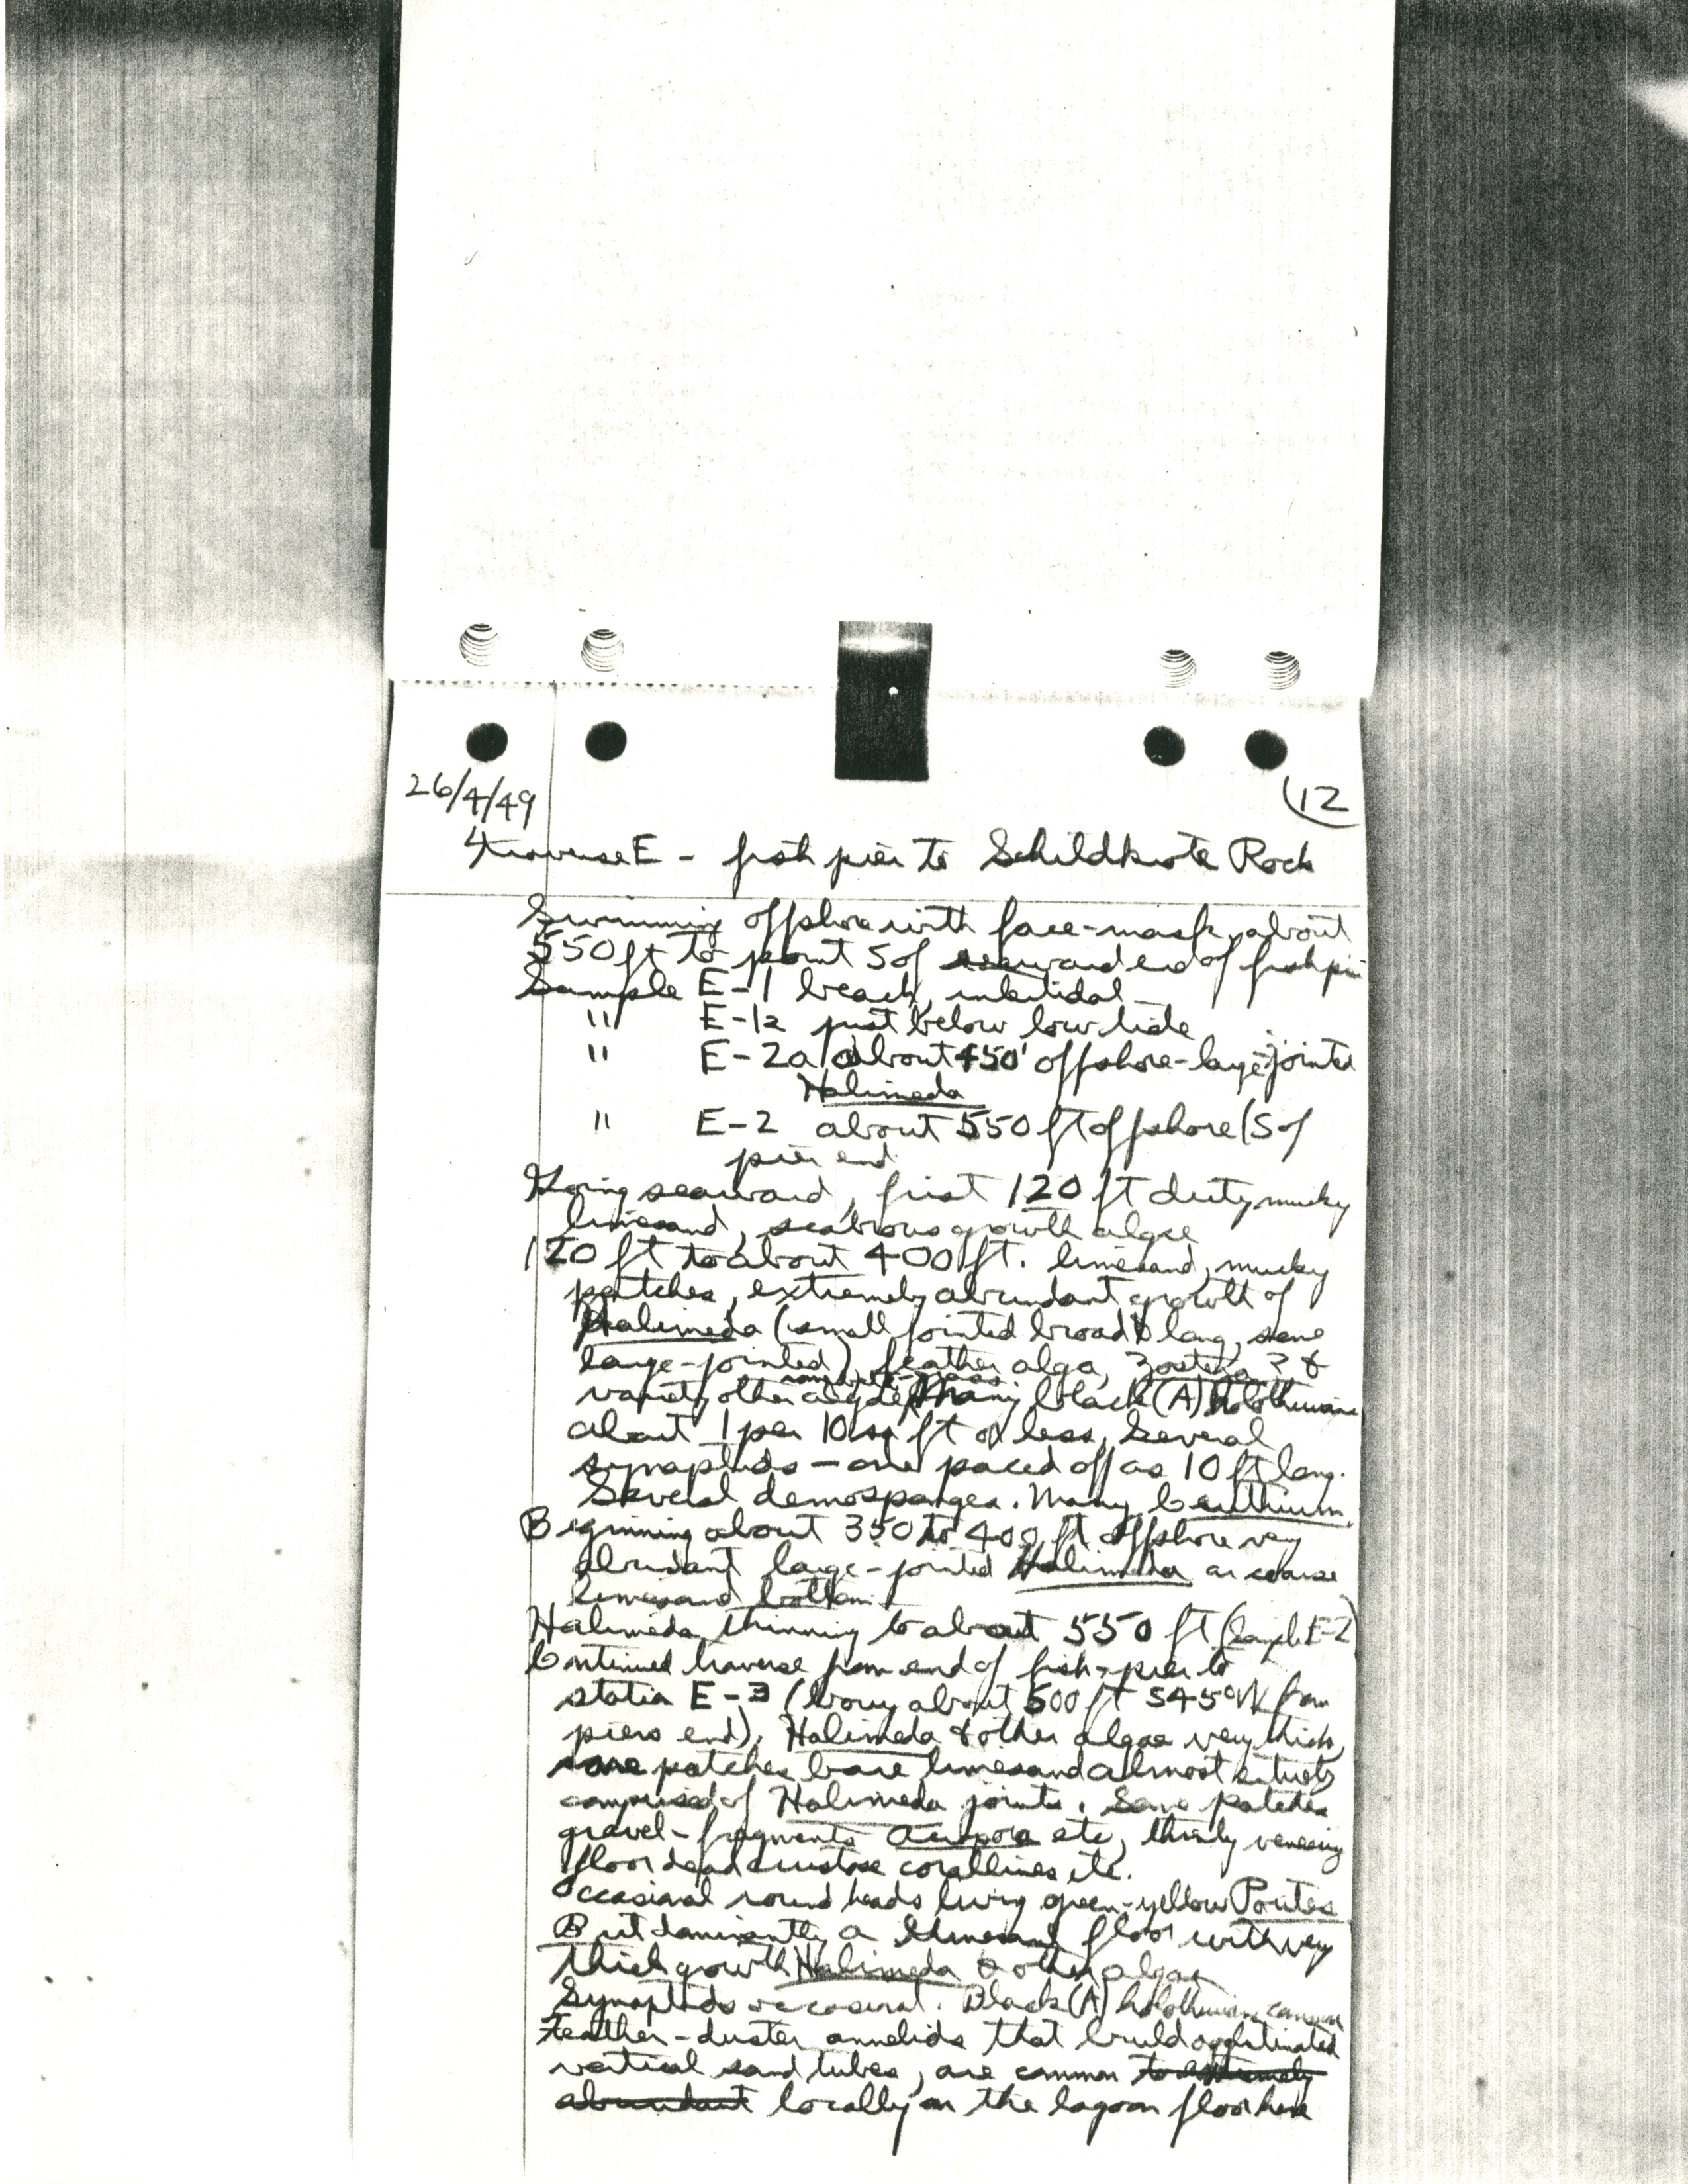 26/4/49
(12
Traverse E - fish pier to Schildkrote Rock
Swimming offshore with face-mask, about
550 ft to point S of seaward end of fish pier
Sample E-1 beach, intertidal
" E-1a just below low tide
" E-2a about 450' offshore-large-jointed
Halimeda
" E-2 about 550 ft offshore (S of
pier end
Going seaward, first 120 ft dirty mucky
limesand, growth algae
120 ft to about 400 ft. limesand, mucky
patches, extremely abundant growth of
Halimeda (small jointed broad & long, some
large-jointed), feather alga, Zostera? &
variety other algae, Many black (A) holothurians
about 1 per 10 sq ft or less, Several
synaptids - one paced off as 10 ft long.
Several demosponges. Many Cerithium.
Beginning about 350 to 400 ft offshore very
abundant large-jointed Halimeda on coarse
limesand bottom
Halimeda thinning to about 550 ft (Sample E-2)
Continued traverse from end of fish-pier to
station E-3 (buoy about 500 ft S45°W from
piers end), Halimeda & other algae very thick,
some patches bare limesand almost entirely
comprised of Halimeda joints. Some patches
gravel-fragments Acropora etc, thinly veneering
floor dead crustose corallines, etc.
Occasional round heads living green-yellow Porites
But dominantly a limesand floor with very
thick growth Halimeda & other algae
Synaptids occasional. Black (A) holothurian common
Feather-duster annelids that build agglutinated
vertical sand tubes, are common to extremely
abundant locally on the lagoon floor here